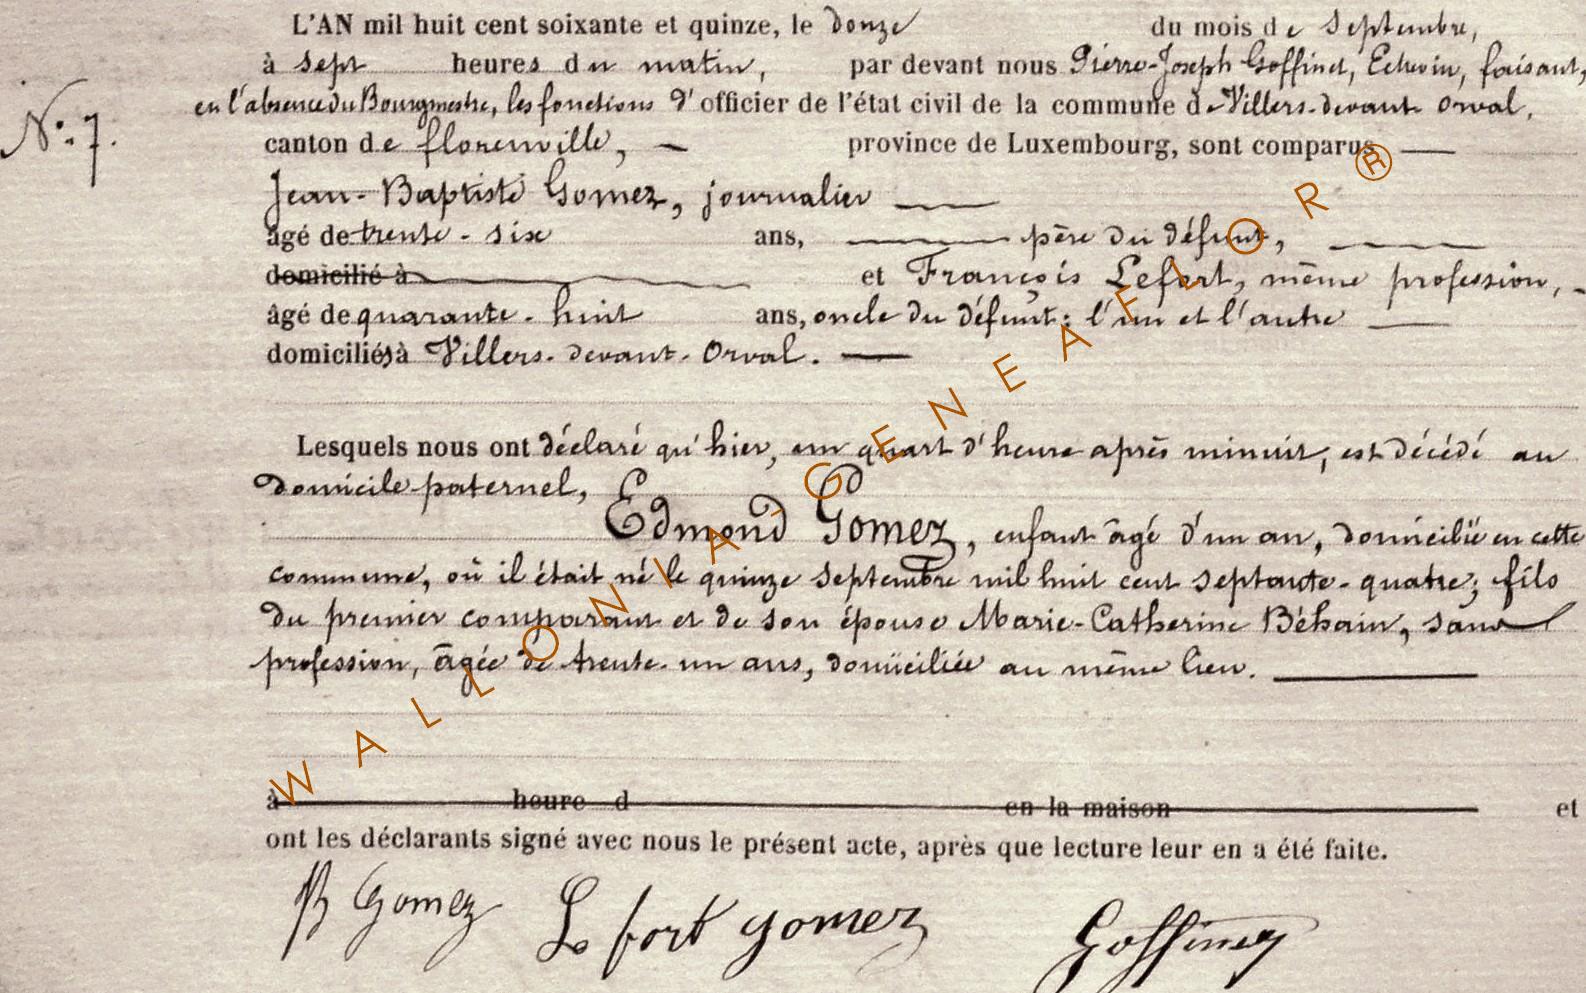 L'AN mil huit cent soixante et quinze, le donze du mois de Septembre,
à sept heures du matin, par devant nous Pierre-Joseph Goffinet, Echevin, faisant,
en l'absence du Bourgmestre, les fonctions d'officier de l'état civil de la commune de Villers-devant-Orval,
N.º 7.
canton de florenville, province de Luxembourg, sont comparus
Jean-Baptiste Gomez, journalier
âgé de trente-six ans, père du défunt,
domicilié à et François Lefort, même profession,
âgé de quarante-huit ans, oncle du défunt: l'un et l'autre
domiciliés à Villers-devant-Orval.
Lesquels nous ont déclaré qu'hier, un quart d'heure après minuit, est décédé au
domicile paternel,
Edmond Gomez, enfant âgé d'un an, domicilié en cette
commune, où il était né le quinze Septembre mil huit cent septante-quatre; fils
du premier comparant et de son épouse Marie-Catherine Béhain, sans
profession, âgée de trente-un ans, domiciliée au même lieu.
à heure d en la maison et
ont les déclarants signé avec nous le présent acte, après que lecture leur en a été faite.
JB Gomez Lefort gomez Goffinet
WALLONIA-GENEAFLOR®